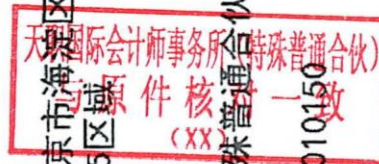 天职国际会计师事务所(特殊普通合伙)
与原件核对一致
(XX)
京市海淀区
5区域
殊普通合伙
010150